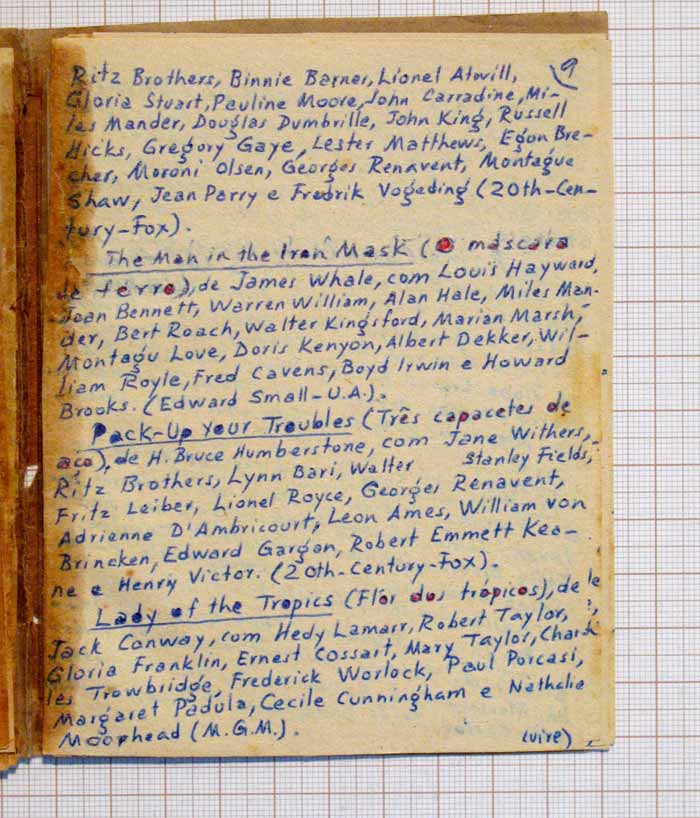 9
Ritz Brothers, Binnie Barner, Lionel Atwill,
Gloria Stuart, Pauline Moore, John Carradine, Mi-
les Mander, Douglas Dumbrille, John King, Russell
Hicks, Gregory Gaye, Lester Matthews, Egon Bre-
cher, Moroni Olsen, Georges Renavent, Montague
Shaw, Jean Parry e Fredrik Vogeding (20th-Cen-
tury-Fox).
The Man in the Iron Mask (O máscara
de ferro), de James Whale, com Louis Hayward,
Joan Bennett, Warren William, Alan Hale, Miles Man-
der, Bert Roach, Walter Kingsford, Marian Marsh,
Montagu Love, Doris Kenyon, Albert Dekker, Wil-
liam Royle, Fred Cavens, Boyd Irwin e Howard
Brooks. (Edward Small-U.A.).
Pack-Up Your Troubles (Três capacetes de
aço), de H. Bruce Humberstone, com Jane Withers,
Ritz Brothers, Lynn Bari, Walter Stanley Fields,
Fritz Leiber, Lionel Royce, Georges Renavent,
Adrienne D'Ambricourt, Leon Ames, William von
Brincken, Edward Gargan, Robert Emmett Kea-
ne e Henry Victor. (20th-Century-Fox).
Lady of the Tropics (Flor dos trópicos), de
Jack Conway, com Hedy Lamarr, Robert Taylor,
Gloria Franklin, Ernest Cossart, Mary Taylor, Char-
les Trowbridge, Frederick Worlock, Paul Porcasi,
Margaret Padula, Cecile Cunningham e Nathalie
Moorhead (M.G.M.).
(vire)